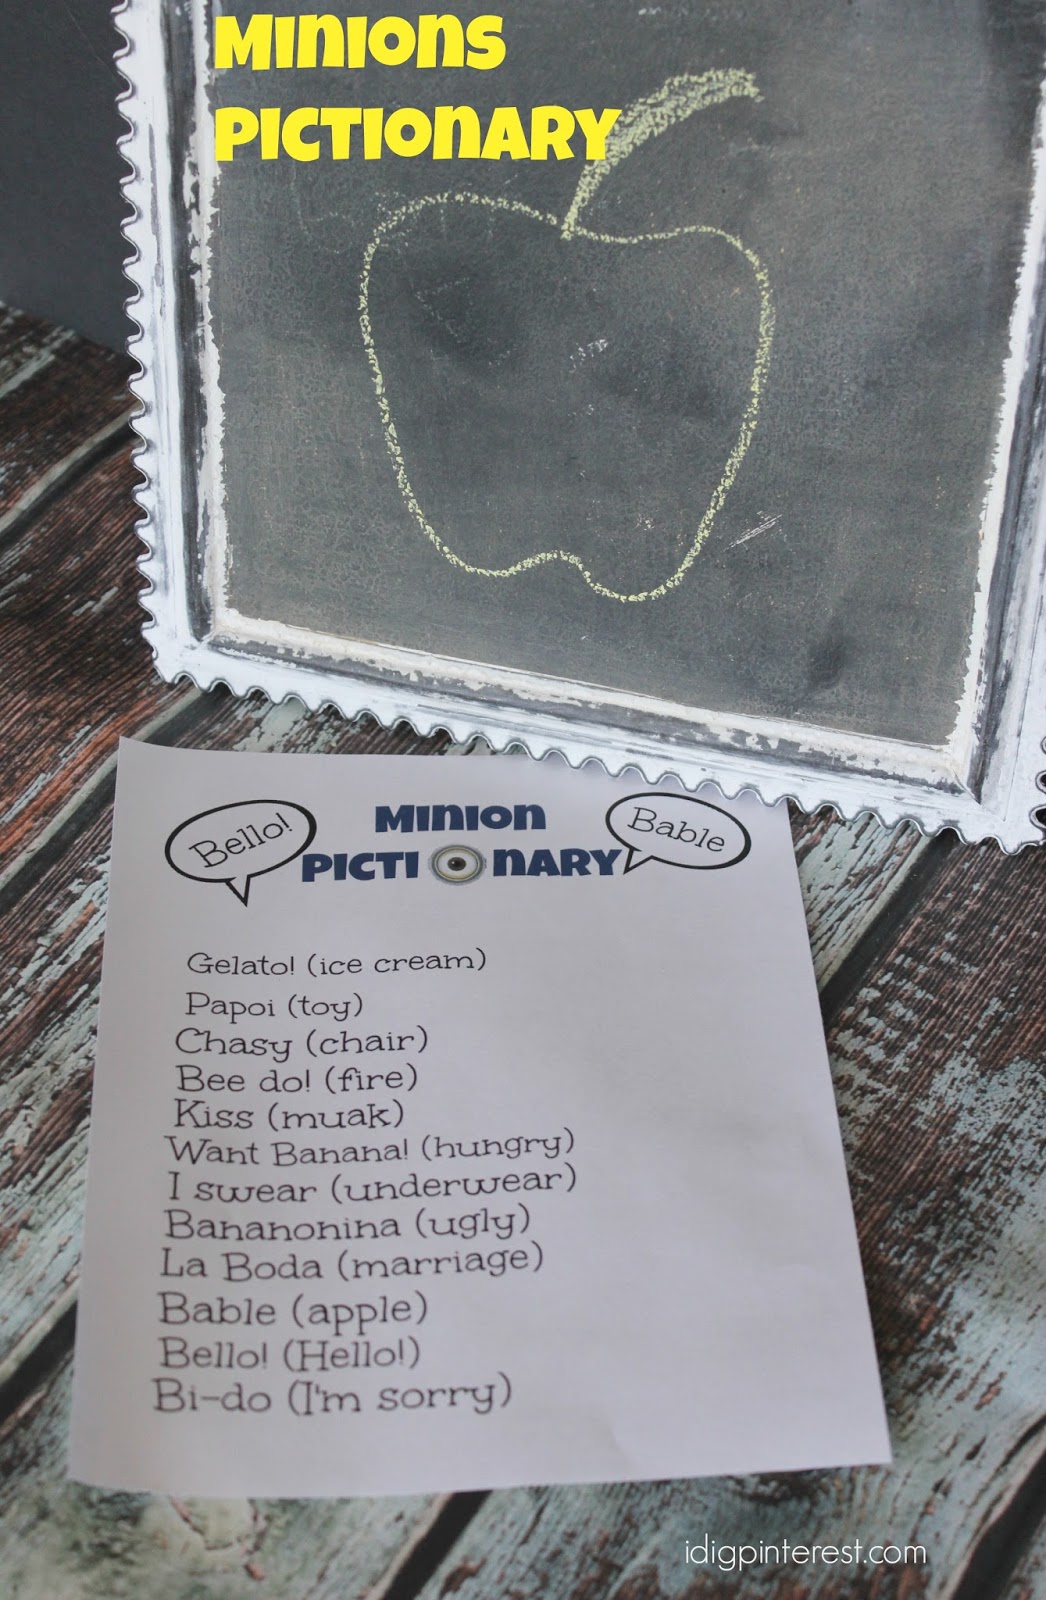 Minions
Pictionary
Bello!
Minion
Bable
Picti nary
Gelato! (ice cream)
Papoi (toy)
Chasy (chair)
Bee do! (fire)
Kiss (muak)
Want Banana! (hungry)
I swear (underwear)
Bananonina (ugly)
La Boda (marriage)
Bable (apple)
Bello! (Hello!)
Bi-do (I'm sorry)
idigpinterest.com